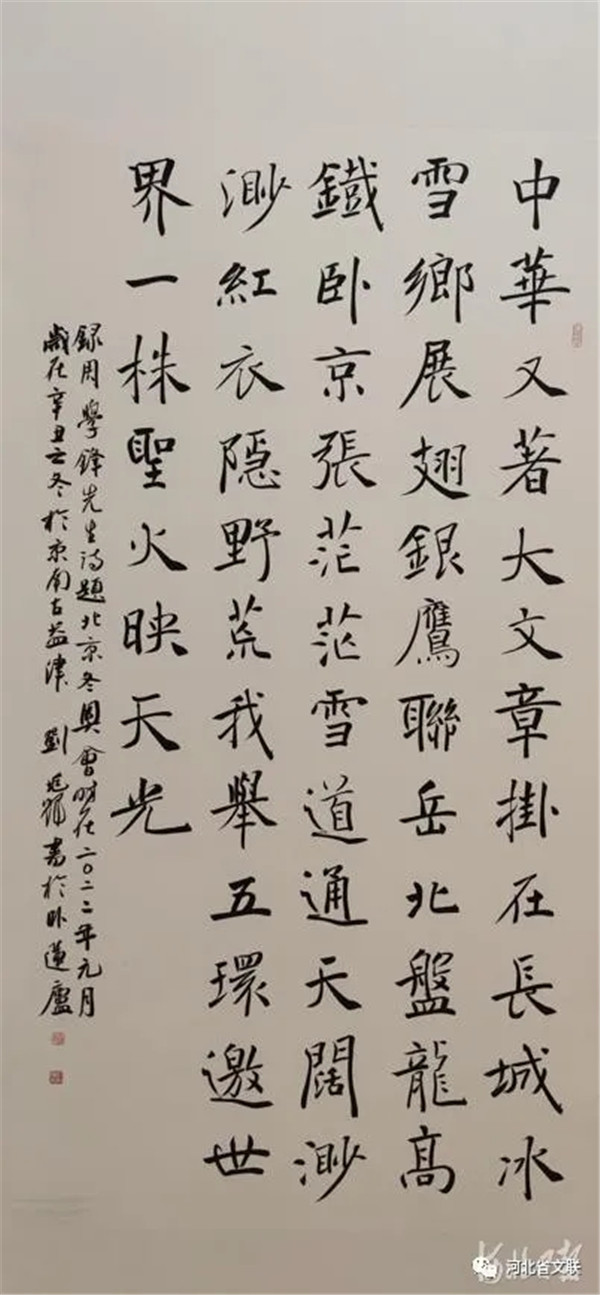 中華又著大文章掛在長城冰
雪鄉展翅銀鷹聯岳北盤龍高
鐵卧京張茫茫雪道通天闊渺
渺紅衣隱野荒我舉五環邀世
界一株聖火映天光
録周學鋒先生詩題北京冬奥會時在二〇二二年元月
歲在辛丑之冬於京南古益津 劉 書於卧蓮廬
河北省文联
河北日报